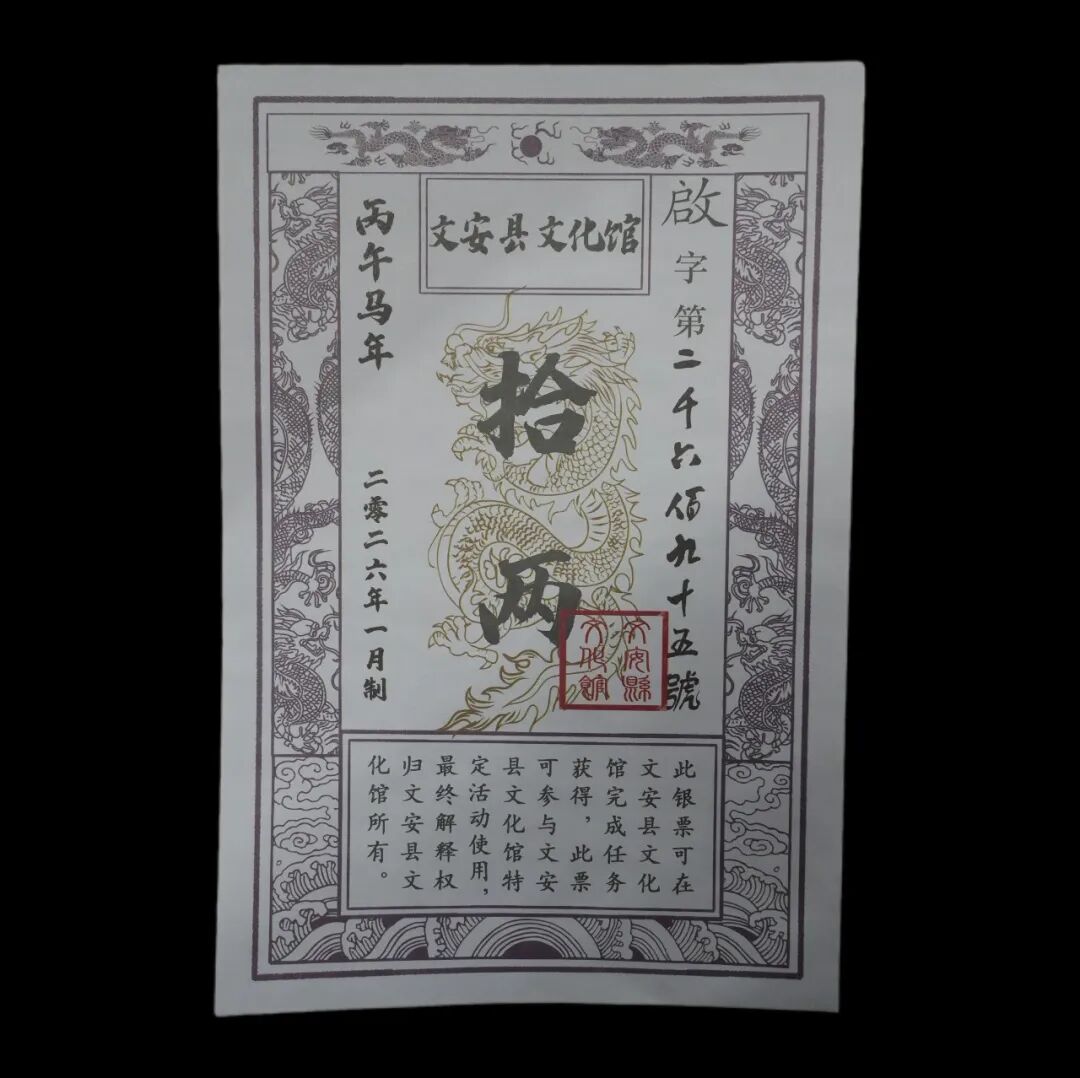 文安县文化馆
啟字第二千六佰九十五號
拾两
丙午马年
二零二六年一月制
文安縣
文化館
此银票可在
文安县文化
馆完成任务
获得，此票
可参与文安
县文化馆特
定活动使用，
最终解释权
归文安县文
化馆所有。